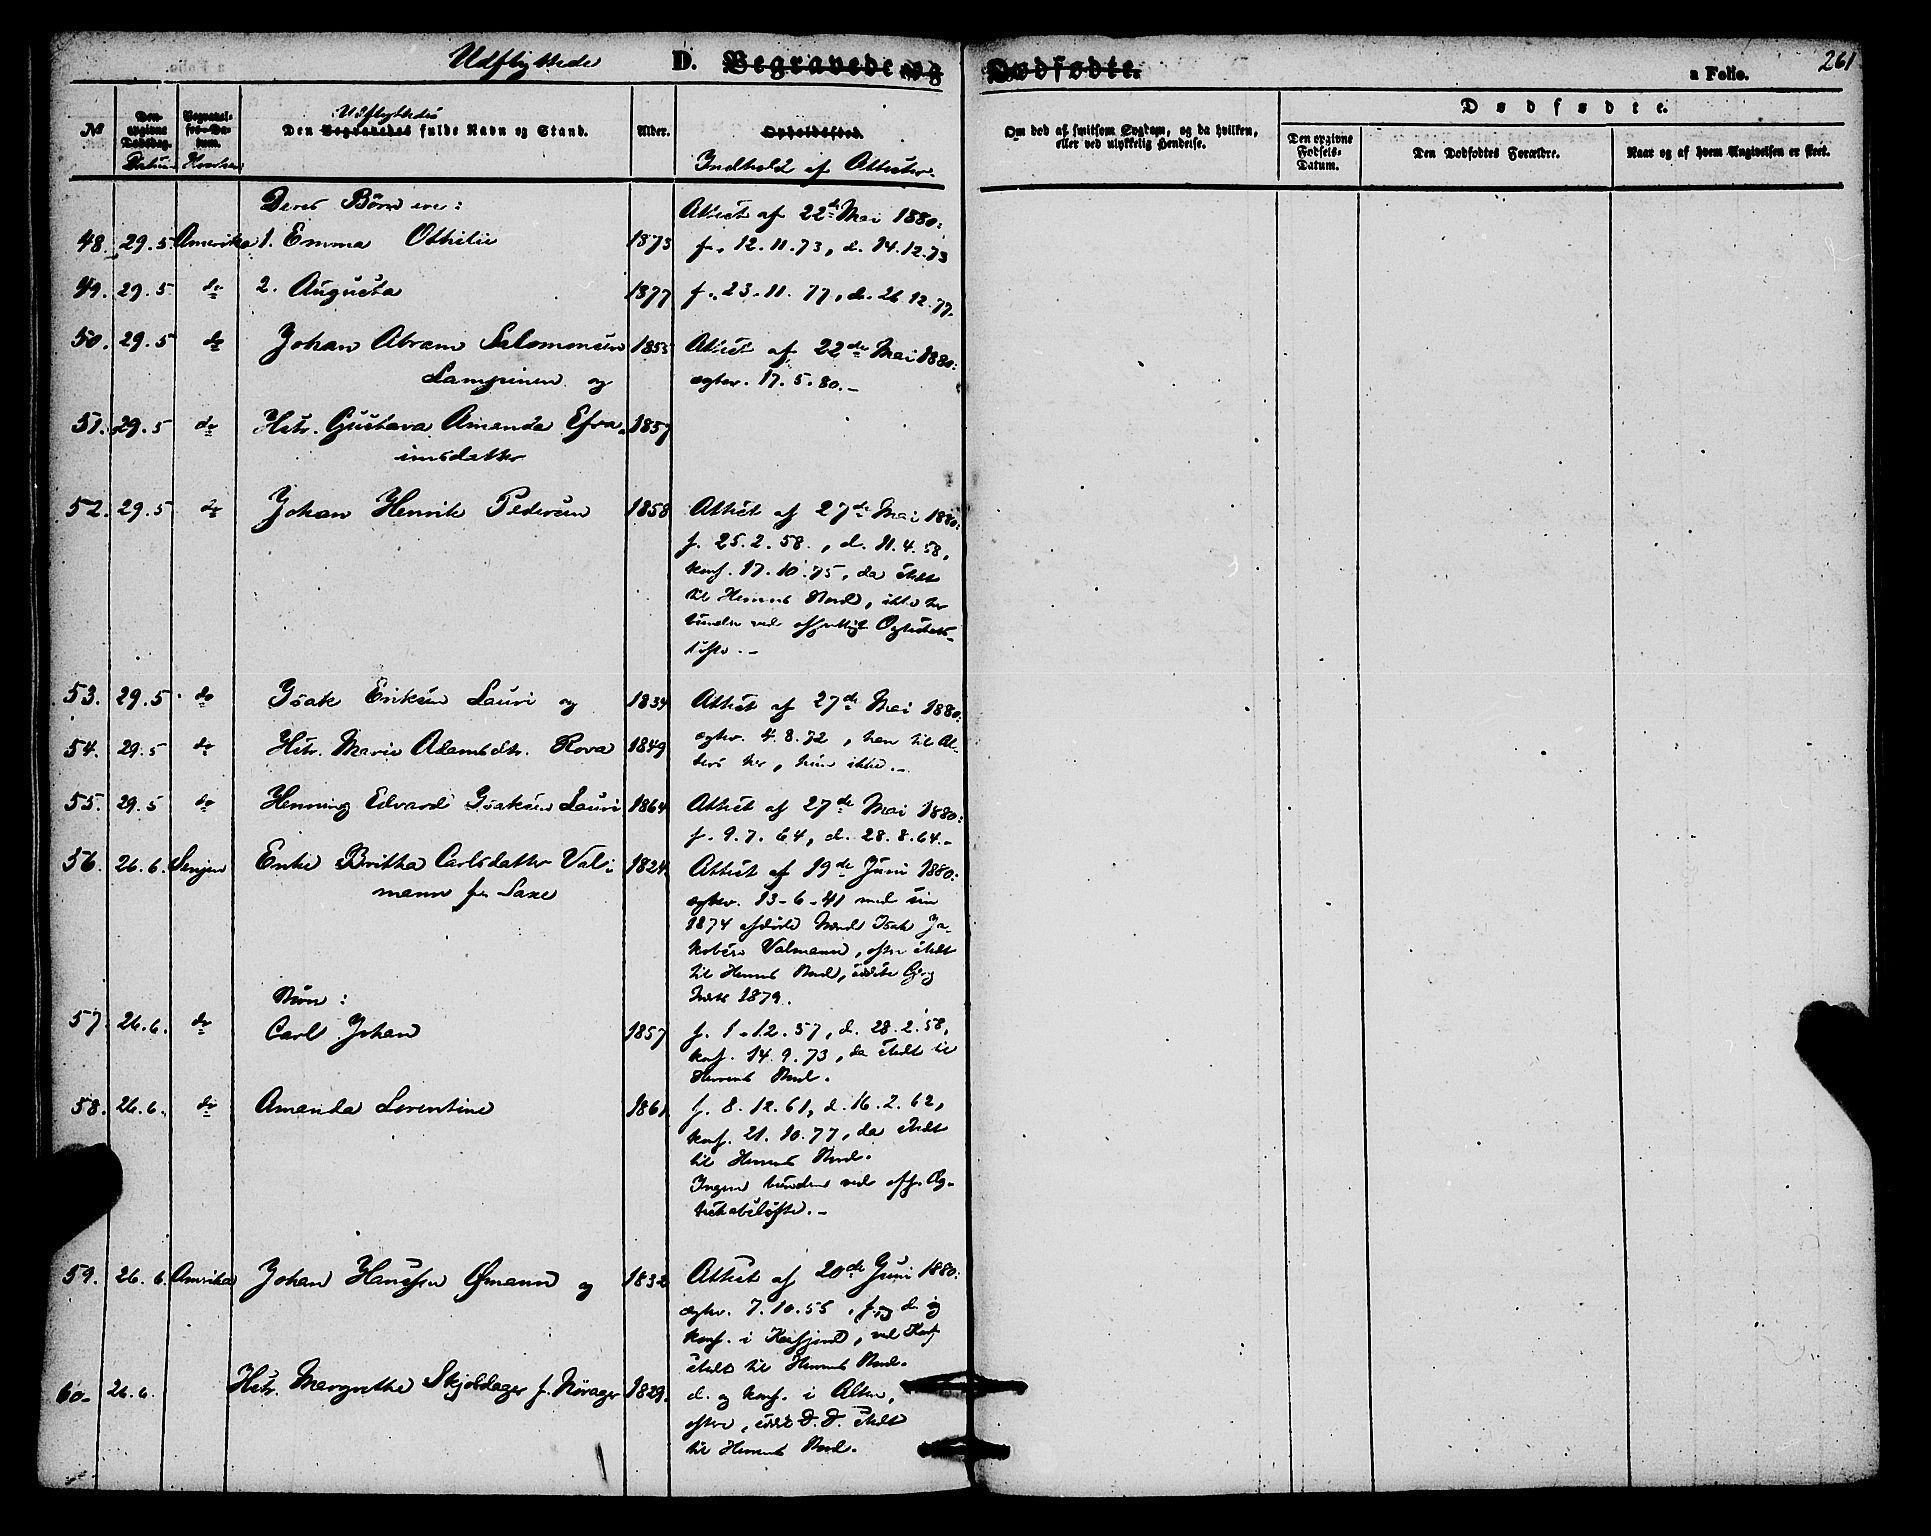 Udflyttede D. Begravede og Dødfødte. a Folio. 261
№
Den opgivne Dødsdag.
Datum
Begravelses-Datum.
Hvorhen
Udflyttedes
Den Begravedes fulde Navn og Stand.
Alder.
Opholdssted.
Indhold af Attester.
Om død af smitsom Sygdom, og da hvilken,
eller ved ulykkelig Hendelse.
Dødfødte.
Den opgivne
Fødsels-
Datum.
Den Dødfødtes Forældre.
Naar og af hvem Angivelsen er skeet.
Deres Børn ere: Attest af 22de Mai 1880:
48. 29.5. Amerika 1. Emma Othilie 1873 f. 12.11.73, d. 14.12.73
49. 29.5 do 2. Augusta 1877 f. 23.11.77, d. 26.12.77.
50. 29.5 do Johan Abram Salomonsen 1855 Attest af 22de Mai 1880:
Lampinen og ægtev. 17.5.80.-
51. 29.5 do Hstr. Gustava Amanda Efra- 1857
imsdatter
52. 29.5 do Johan Henrik Pedersen 1858 Attest af 27de Mai 1880:
f. 25.2.58., d. 11.4.58,
konf. 17.10.75, da stedt
til Herrens Bord, ikke her
bunden ved offentligt Ægteskabs-
løfte.-
53. 29.5 do Isak Eriksen Lauri og 1834 Attest af 27de Mai 1880:
54. 29.5 do Hstr. Marie Adamsdtr. Rova 1849 ægtev. 4.8.72, han til Al-
ters her, hun ikke.-
55. 29.5 do Henning Edvard Isaksen Lauri 1864 Attest af 27de Mai 1880:
f. 9.7.64, d. 28.8.64.-
56. 26.6. Senjen Enke Britha Carlsdatter Val- 1824 Attest af 19de Juni 1880:
mann f. Saxe ægtev. 13-6-41 med sin
1874 afdøde Mand Isak Ja-
kobsen Valmann, ofte stedt
til Herrens Bord, sidste Gang
1879.
Børn:
57. 26.6. do Carl Johan 1857 f. 1.12.57, d. 28.2.58,
konf. 14.9.73, da stedt til
Herrens Bord.
58. 26.6. do Amanda Lorentine 1861 f. 8.12.61, d. 16.2.62,
konf. 21.10.77, da stedt
til Herrens Bord.
Ingen bunden ved off. Æg-
teskabsløfte.-
59. 26.6. Amerika Johan Hanssen Ømann og 1832 Attest af 20de Juni 1880:
ægtev. 7.10.55, f. og d. og
konf. i Kaafjord, ved Konf
stedt til Herrens Bord.
60- 26.6. Hstr. Margrethe Skjoldager f. Norager 1829. d. og konf. i Alten,
ofte, stedt
til Herrens Bord.